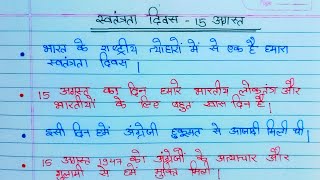 स्वतंत्रता दिवस - 15 अगस्त
भारत के राष्ट्रीय त्योहारों में से एक है हमारा
स्वतंत्रता दिवस।
15 अगस्त का दिन हमारे भारतीय लोकतंत्र और
भारतीयों के लिए बहुत खास दिन है।
इसी दिन हमें अंग्रेजी हुकूमत से आजादी मिली थी।
15 अगस्त 1947 को अंग्रेजों के अत्याचार और
गुलामी से हमें मुक्ति मिली।